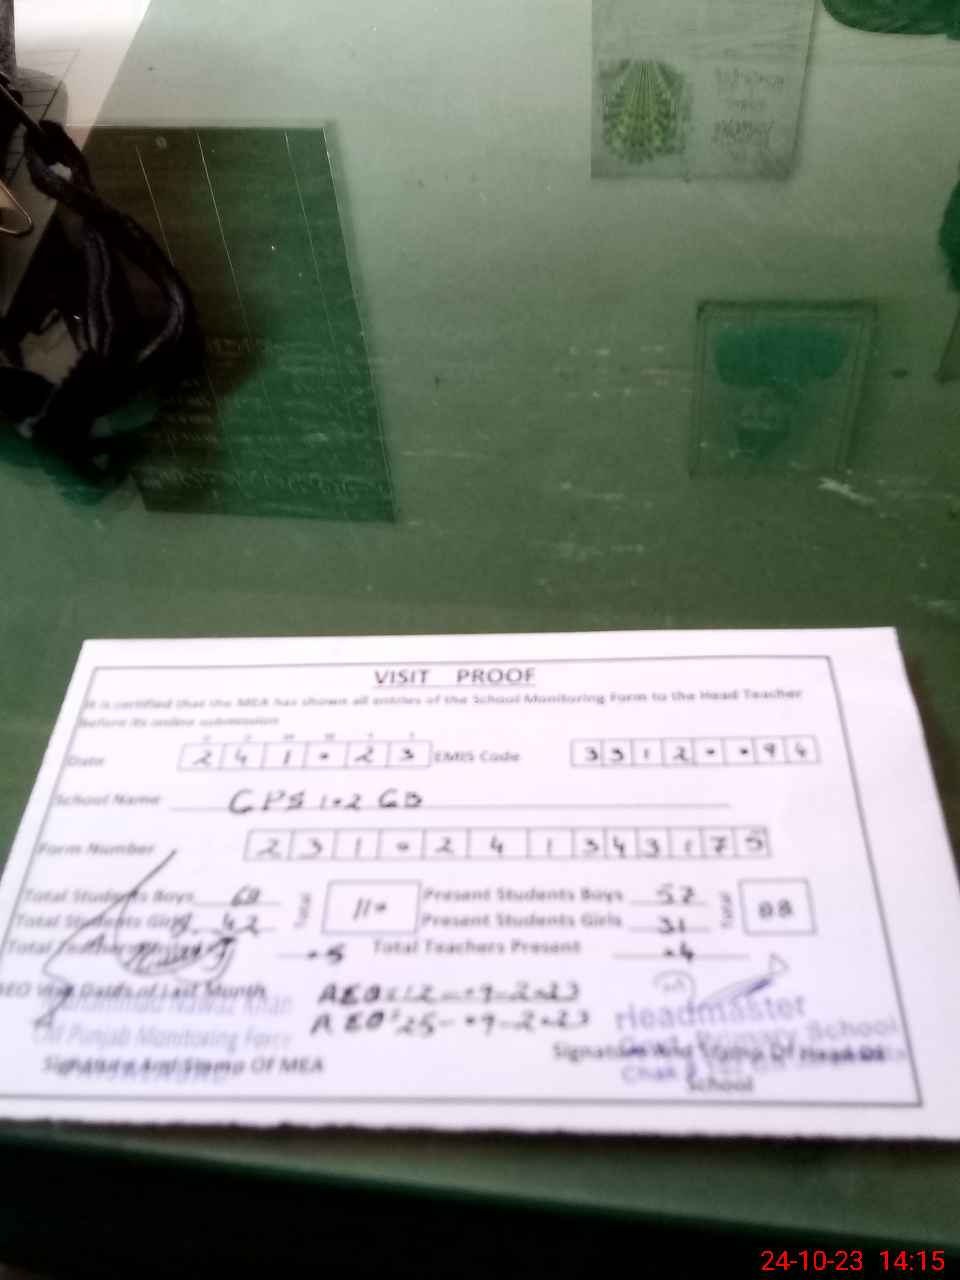 VISIT PROOF
It is certified that the MEA has shown all entries of the School Monitoring Form to the Head Teacher
before its online submission
Date 2 4 1 0 2 3 EMIS Code 3 3 1 2 0 0 9 4
School Name GPS 102 GB
Form Number 2 3 1 0 2 4 1 3 4 3 1 7 5
Total Students Boys 68 Total 110 Present Students Boys 57 Total 88
Total Students Girls 42 Present Students Girls 31
Total Teachers 05 Total Teachers Present 04
AEO Visit Dates of Last Month AEO: 12-09-2023
AEO: 25-09-2023
Muhammad Nawaz Khan
Punjab Monitoring Force
Signature And Stamp Of MEA
Headmaster
Govt. Primary School
Chak
Signature And Stamp Of Head Of
School
24-10-23 14:15